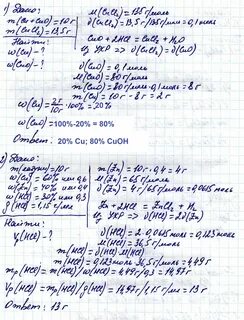 1) Дано:
m(Cu+CuO)=10г
m(CuCl₂)=13,5г
Найти:
w(Cu)-?
w(CuO)-?
M(CuCl₂)=135г/моль
ν(CuCl₂)=13,5г/135г/моль=0,1моль
CuO+2HCl=CuCl₂+H₂O
из УХР => ν(CuCl₂)=ν(CuO)
ν(CuO)=0,1моль
M(CuO)=80г/моль
m(CuO)=80г/моль·0,1моль=8г
m(Cu)=10г-8г=2г
w(Cu)=2г/10г·100%=20%
w(CuO)=100%-20% = 80%
Ответ: 20% Cu; 80% CuOH
2) Дано:
m(смеси)=10г
w(Cu)=60% или 0,6
w(Zn)=40% или 0,4
w(HCl)=30% или 0,3
ρ(HCl)=1,15г/мл
Найти:
Vр(HCl)-?
m(Zn)=10г·0,4=4г
M(Zn)=65г/моль
ν(Zn)=4г/65г/моль=0,0615моль
Zn+2HCl=ZnCl₂+H₂
из УХР => ν(HCl)=2ν(Zn)
ν(HCl)=2·0,0615моль=0,123моль
M(HCl)=36,5г/моль
m(HCl)=ν(HCl)·M(HCl)
m(HCl)=0,123моль·36,5г/моль=4,49г
mр(HCl)=m(HCl)/w(HCl)=4,49г/0,3=14,97г
Vр(HCl)=mр(HCl)/ρ(HCl)=14,97г/1,15г/мл=13г
Ответ: 13г